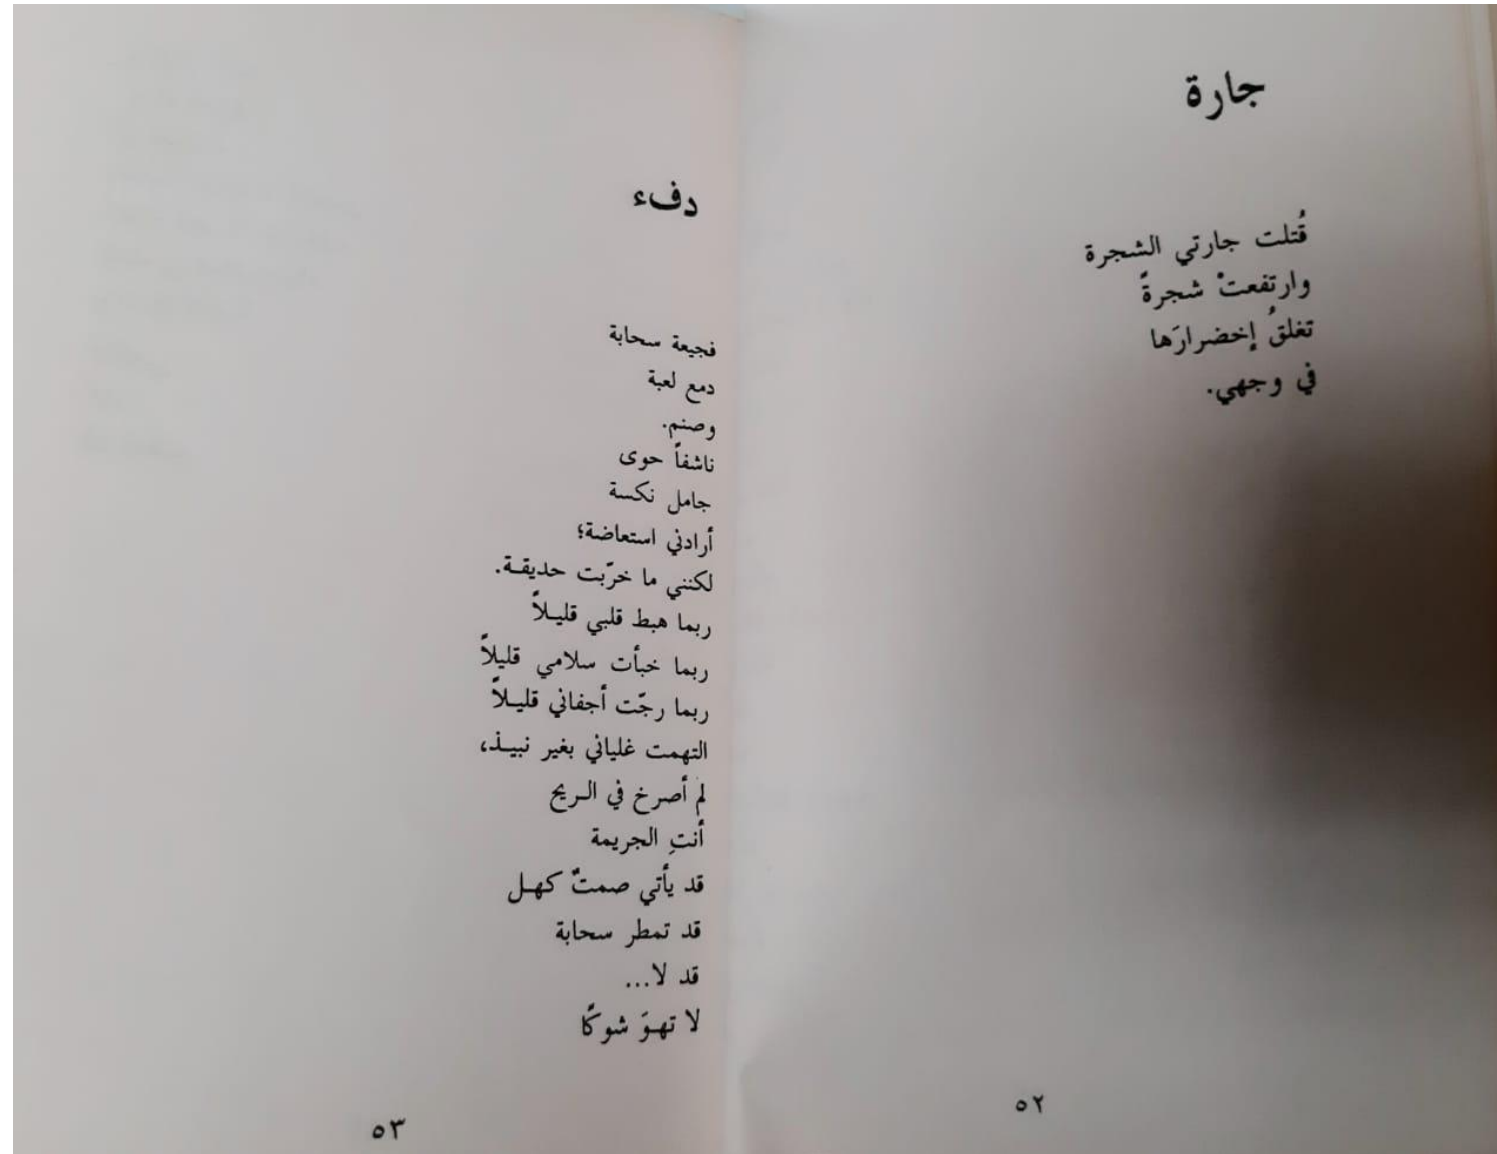 جارة
قُتلت جارتي الشجرة
وارتفعتْ شجرةً
تغلقُ إخضرارَها
في وجهي.
٥٢
دفء
فجيعة سحابة
دمع لعبة
وصنم.
ناشفاً حوى
جامل نكسة
أرادني استعاضة؛
لكنني ما خرّبت حديقة.
ربما هبط قلبي قليلاً
ربما خبأت سلامي قليلاً
ربما رجّت أجفاني قليلاً
التهمت غلياني بغير نبيذ،
لم أصرخ في الريح
أنتِ الجريمة
قد يأتي صمتٌ كهل
قد تمطر سحابة
قد لا...
لا تهوَ شوكًا
٥٣